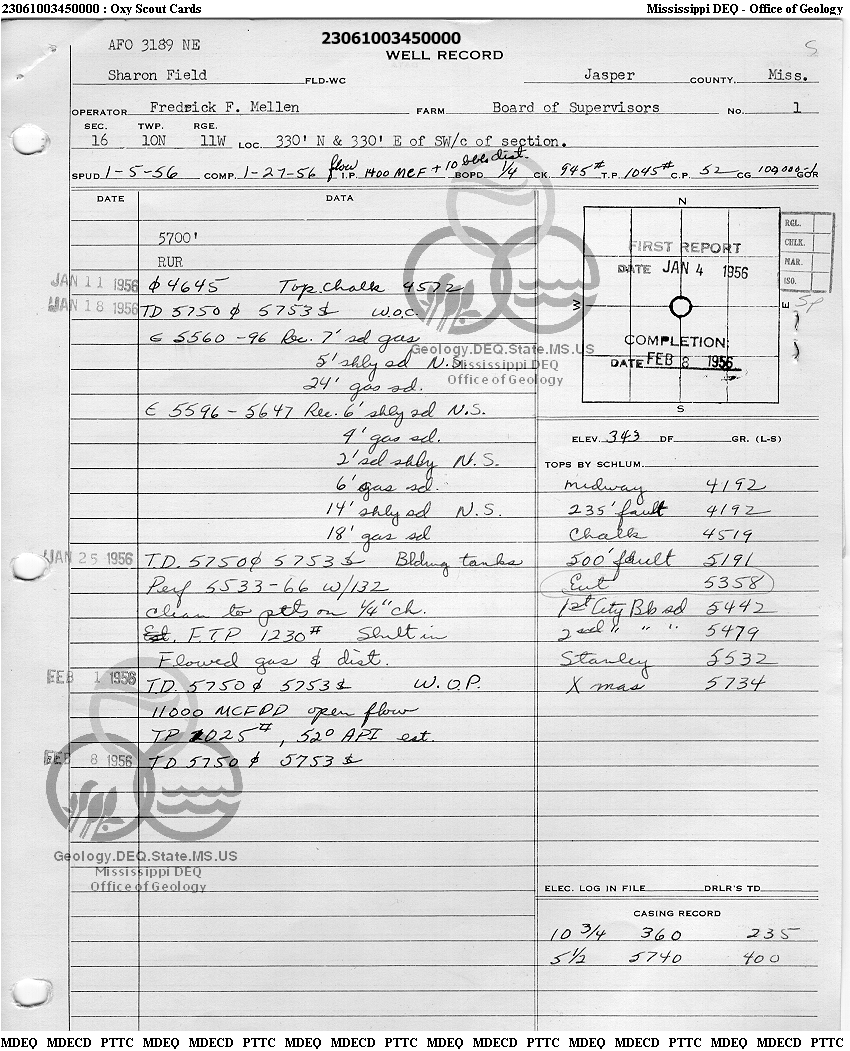 23061003450000 : Oxy Scout Cards
Mississippi DEQ - Office of Geology
AFO 3189 NE
23061003450000
WELL RECORD
S
Sharon Field FLD-WC Jasper COUNTY Miss.
OPERATOR Fredrick F. Mellen FARM Board of Supervisors No. 1
SEC. TWP. RGE.
16 10N 11W LOC. 330' N & 330' E of SW/c of section.
SPUD 1-5-56 COMP. 1-27-56 flow I.P. 1400 MCF + 10 bbls dist. BOPD 1/4 CK. 945# T.P. 1045# C.P. 52 CG 100,000-1 GOR
DATE DATA
5700'
RUR
JAN 11 1956 ф 4645 Top Chalk 4572
JAN 18 1956 TD 5750 ф 5753 $ W.O.C.
C 5560-96 Rec. 7' sd gas
5' shly sd N.S.
24' gas sd.
C 5596-5647 Rec. 6' shly sd N.S.
4' gas sd.
2' sd shly N.S.
6' gas sd.
14' shly sd N.S.
18' gas sd
JAN 25 1956 T.D. 5750 ф 5753 $ Bldng tanks
Perf 5533-66 w/132
Clean to pits on 1/4" ch.
Est. F.T.P 1230# Shut in
Flowed gas & dist.
FEB 1 1956 T.D. 5750 ф 5753 $ W.O.P.
11000 MCFPD open flow
TP 2025#, 52° API est.
FEB 8 1956 TD 5750 ф 5753 $
N
W
E
S
FIRST REPORT
DATE JAN 4 1956
COMPLETION
DATE FEB 8 1956
RGL.
CHLK.
MAR.
ISO.
SP
ELEV. 343 DF GR. (L-S)
TOPS BY SCHLUM.
Midway 4192
235' fault 4192
Chalk 4519
500' fault 5191
Eut 5358
1st City Bb sd 5442
2nd " " " 5479
Stanley 5532
X mas 5734
ELEC. LOG IN FILE DRLR'S TD
CASING RECORD
10 3/4 360 235
5 1/2 5740 400
Geology.DEQ.State.MS.US
Mississippi DEQ
Office of Geology
Geology.DEQ.State.MS.US
Mississippi DEQ
Office of Geology
MDEQ MDECD PTTC MDEQ MDECD PTTC MDEQ MDECD PTTC MDEQ MDECD PTTC MDEQ MDECD PTTC MDEQ MDECD PTTC